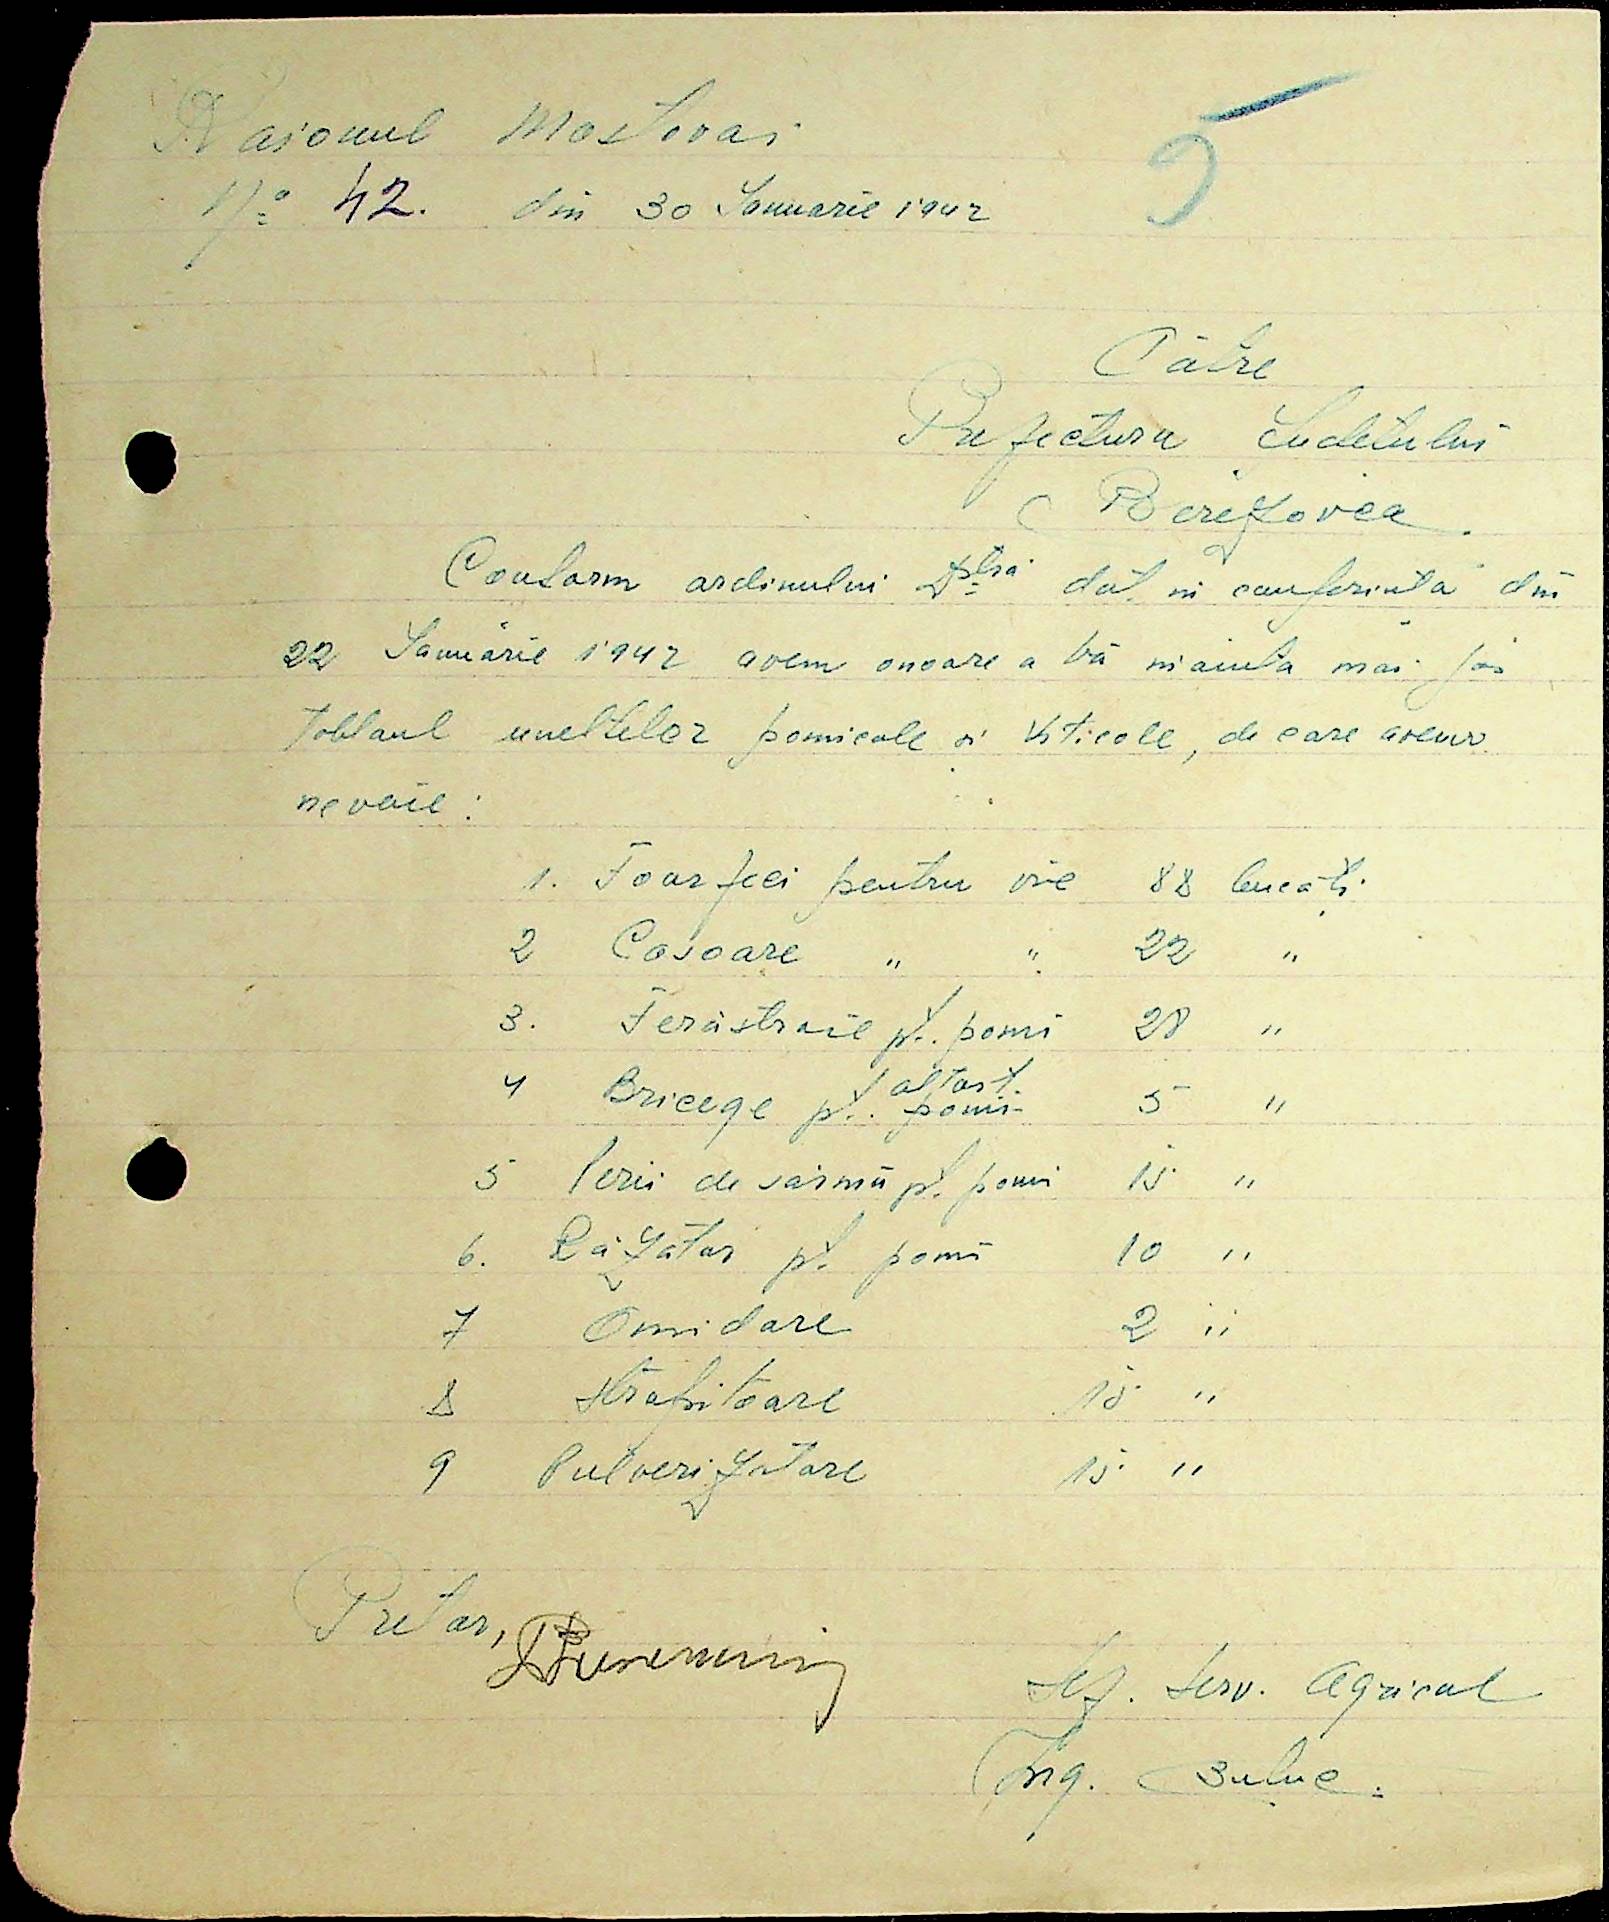 Raionul Mostovoi
5
No 42. din 30 Ianuarie 1942
Către
Prefectura Judetului
Berezovca
Conform ordinului Dstră dat in conferinta din
22 Ianuarie 1942 avem onoare a vă inainta mai jos
tabloul uneltelor pomicole si viticole, de care avem
nevoie:
1. Foarfeci pentru vie 88 bucăți
2 Cosoare " " 22 "
3. Ferăstraie pt. pomi 28 "
altoit.
4 Bricege pt. pomi 5 "
5 Perii de sârmă pt. pomi 15 "
6. Răzători pt. pomi 10 "
7 Omidare 2 "
8 Stropitoare 15 "
9 Pulverizatore 15 "
Pretor,
Șef. Serv. Agricol
Ing.